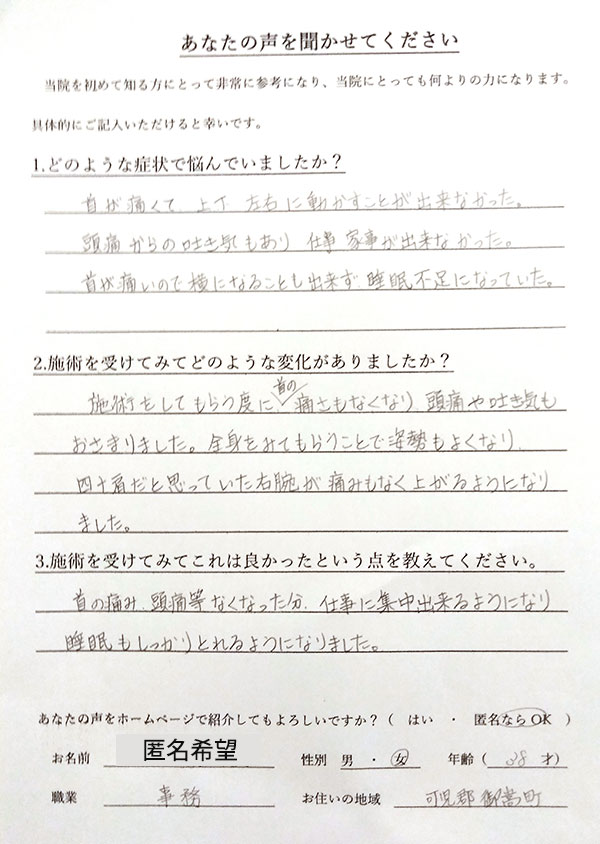 あなたの声を聞かせてください
当院を初めて知る方にとって非常に参考になり、当院にとっても何よりの力になります。
具体的にご記入いただけると幸いです。
1.どのような症状で悩んでいましたか？
首が痛くて 上下 左右に動かすことが出来なかった。
頭痛からの吐き気もあり 仕事 家事が出来なかった。
首が痛いので横になることも出来ず、睡眠不足になっていた。
2.施術を受けてみてどのような変化がありましたか？
首の
施術をしてもらう度に 痛さもなくなり 頭痛や吐き気も
おさまりました。全身をみてもらうことで姿勢もよくなり、
四十肩だと思っていた右腕が痛みもなく上がるようになり
ました。
3.施術を受けてみてこれは良かったという点を教えてください。
首の痛み、頭痛等なくなった分、仕事に集中出来るようになり
睡眠もしっかりとれるようになりました。
あなたの声をホームページで紹介してもよろしいですか？（ はい ・ 匿名ならOK ）
お名前 匿名希望 性別 男 ・ 女 年齢（ 38 才）
職業 事務 お住いの地域 可児郡御嵩町